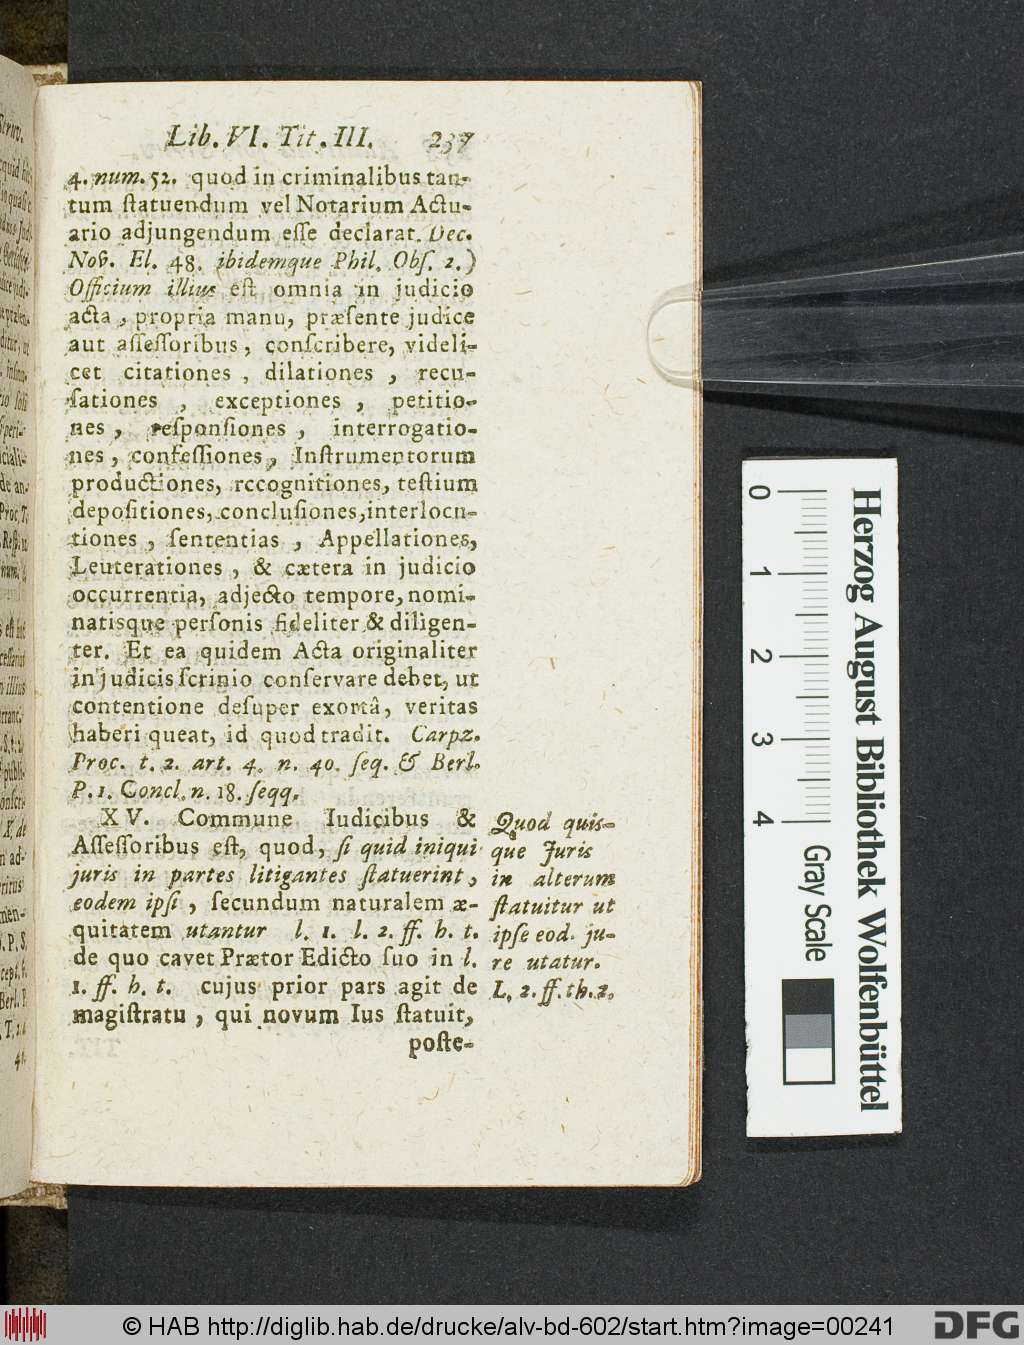 Lib. VI. Tit. III. 237
4. num. 52. quod in criminalibus tan-
tum ſtatuendum vel Notarium Actu-
ario adjungendum eſſe declarat. Dec.
Nov. El. 48. ibidemque Phil. Obſ. 2.)
Officium illius eſt omnia in judicio
acta, propria manu, præſente judice
aut aſſeſſoribus, conſcribere, videli-
cet citationes, dilationes, recu-
ſationes, exceptiones, petitio-
nes, reſponſiones, interrogatio-
nes, confeſſiones, Inſtrumentorum
productiones, recognitiones, teſtium
depoſitiones, concluſiones, interlocu-
tiones, ſententias, Appellationes,
Leuterationes, & cætera in judicio
occurrentia, adjecto tempore, nomi-
natisque perſonis fideliter & diligen-
ter. Et ea quidem Acta originaliter
in judicis ſcrinio conſervare debet, ut
contentione deſuper exortâ, veritas
haberi queat, id quod tradit. Carpz.
Proc. t. 2. art. 4. n. 40. ſeq. & Berl.
P. 1. Concl. n. 18. ſeqq.
XV. Commune Iudicibus &
Aſſeſſoribus eſt, quod, ſi quid iniqui
juris in partes litigantes ſtatuerint,
eodem ipſi, ſecundum naturalem æ-
quitatem utantur l. 1. l. 2. ff. h. t.
de quo cavet Prætor Edicto ſuo in l.
1. ff. h. t. cujus prior pars agit de
magiſtratu, qui novum Ius ſtatuit,
poſte-
Quod quis-
que Juris
in alterum
ſtatuitur ut
ipſe eod. ju-
re utatur.
L. 2. ff. th. 2.
0 1 2 3 4
Gray Scale
Herzog August Bibliothek Wolfenbüttel
© HAB http://diglib.hab.de/drucke/alv-bd-602/start.htm?image=00241
DFG